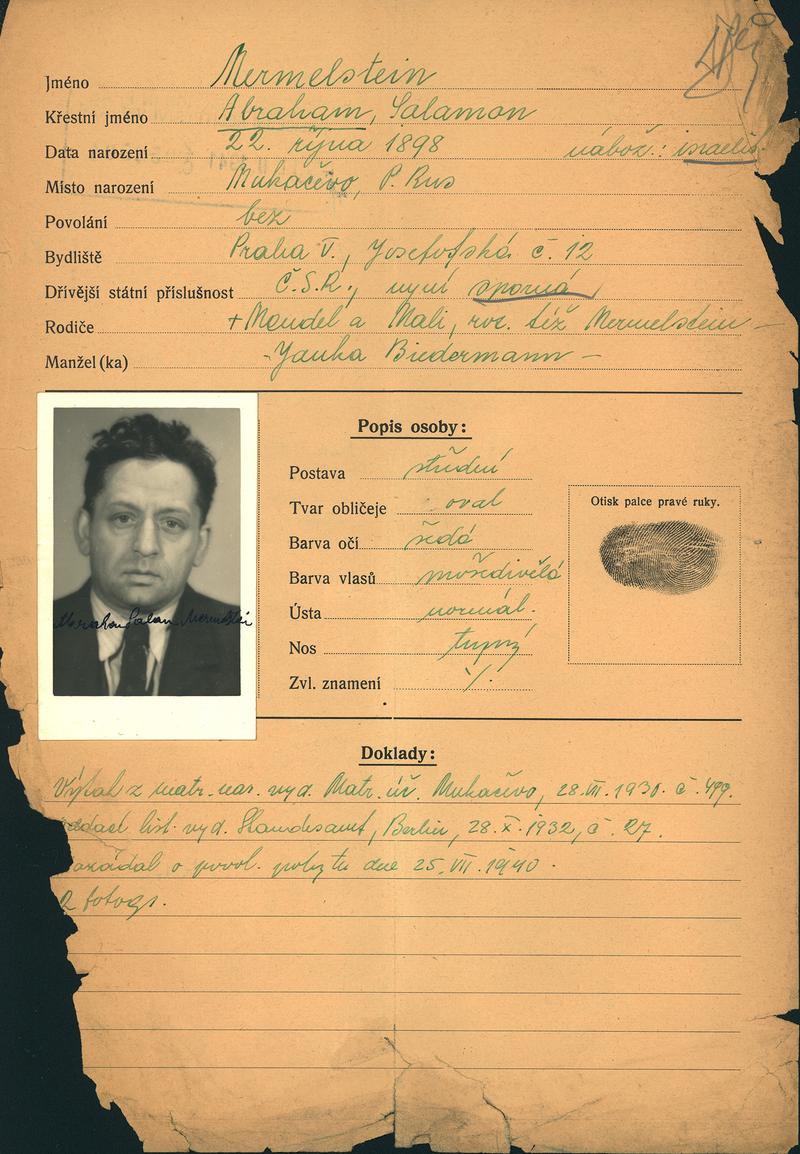 Jméno Mermelstein
Křestní jméno Abraham, Salamon
Data narození 22. října 1898 nábož.: israelis.
Místo narození Mukačevo, P. Rus
Povolání bez
Bydliště Praha V., Josefofská č. 12
Dřívější státní příslušnost Č.S.R., nyní sporná
Rodiče + Mendel a Mali, roz. též Mermelstein —
Manžel(ka) - Janka Biedermann —
Popis osoby:
Postava střední
Tvar obličeje oval
Barva očí šedá
Barva vlasů prošedivělá
Ústa normál.
Nos tupý
Zvl. znamení ./.
Otisk palce pravé ruky.
Doklady:
Výtah z matr. nar. vyd. Matr. úř. Mukačevo, 28. 1930. č. 499.
oddací list. vyd. Standesamt, Berlin, 28. X. 1932, č. 27.
ožádal o povol. pobytu dne 25. VII. 1940.
2 fotogr.